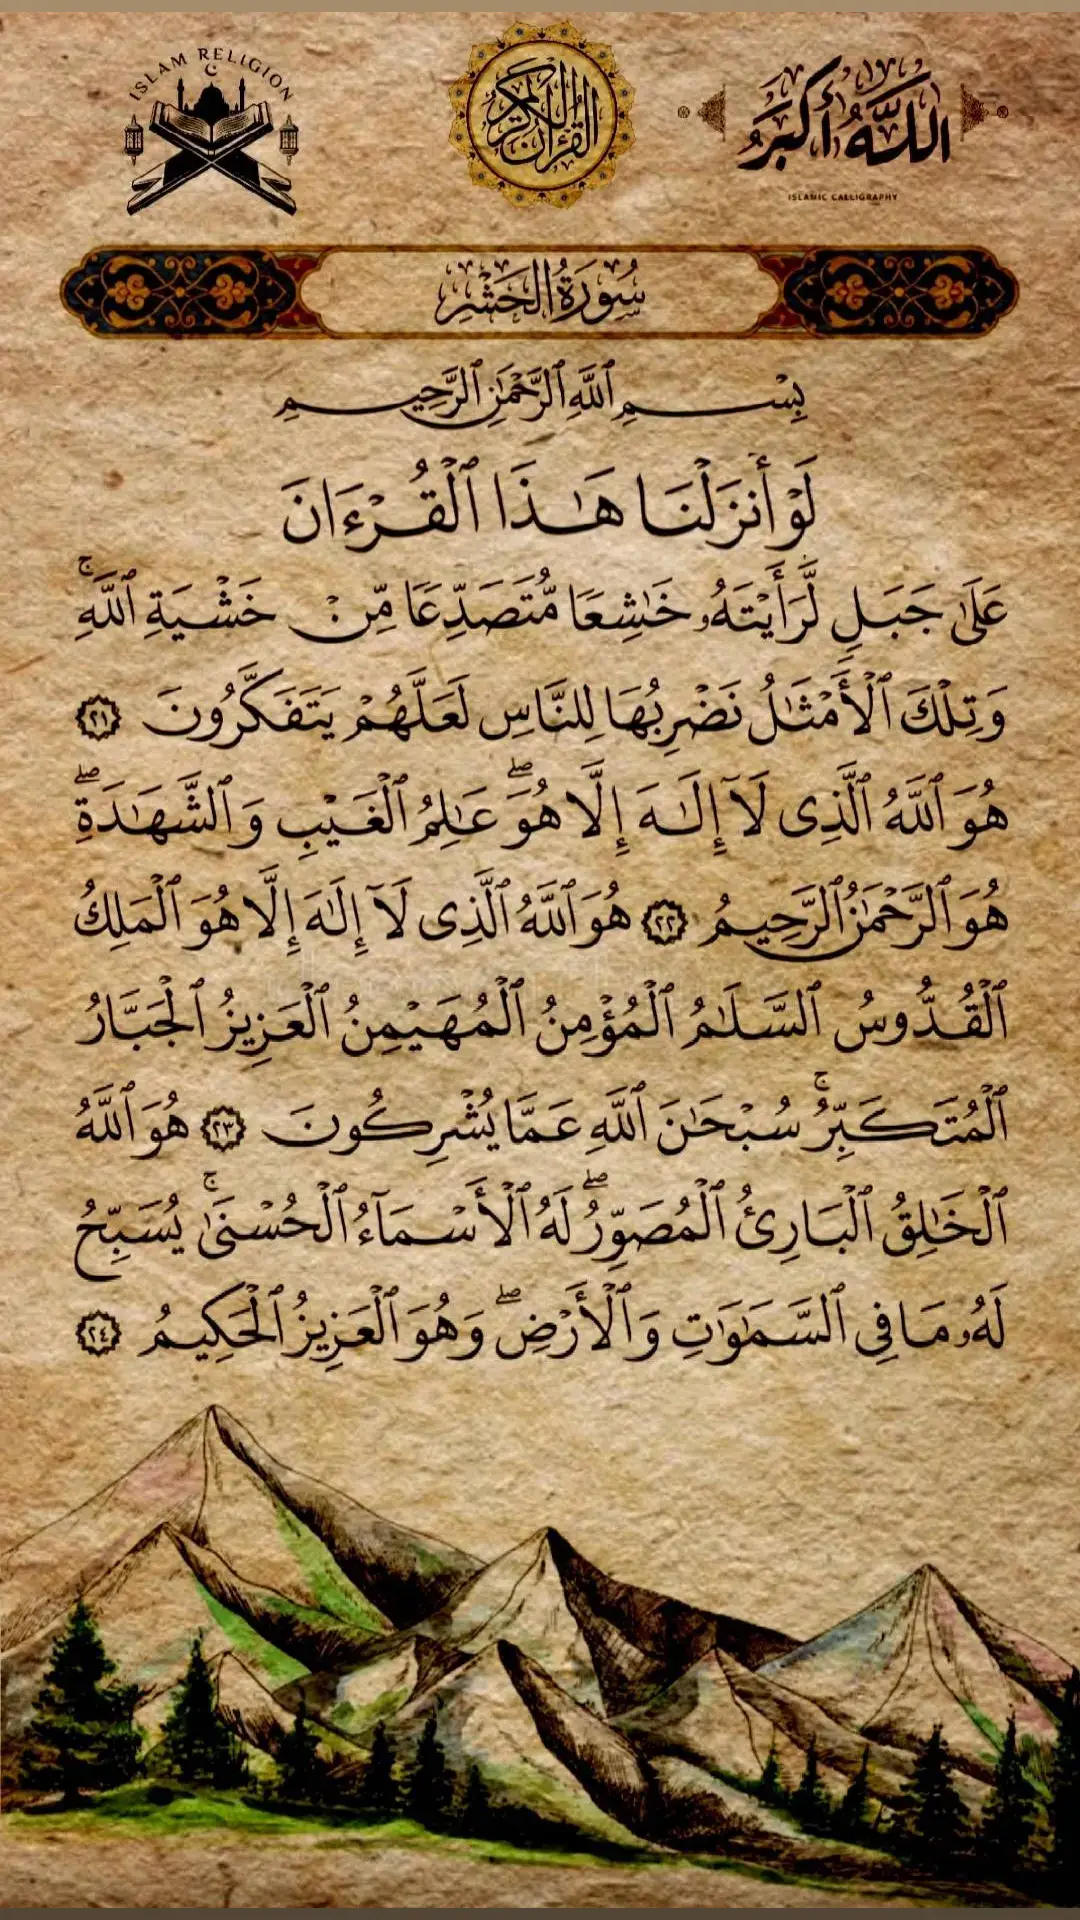 ISLAM RELIGION
القرآن الكريم
اللَّهُ أَكْبَرُ
ISLAMIC CALLIGRAPHY
سُورَةُ الحَشْرِ
بِسْمِ ٱللَّهِ ٱلرَّحْمَٰنِ ٱلرَّحِيمِ
لَوْ أَنزَلْنَا هَٰذَا ٱلْقُرْءَانَ
عَلَىٰ جَبَلٍ لَّرَأَيْتَهُۥ خَٰشِعًا مُّتَصَدِّعًا مِّنْ خَشْيَةِ ٱللَّهِۚ
وَتِلْكَ ٱلْأَمْثَٰلُ نَضْرِبُهَا لِلنَّاسِ لَعَلَّهُمْ يَتَفَكَّرُونَ ٢١
هُوَ ٱللَّهُ ٱلَّذِى لَآ إِلَٰهَ إِلَّا هُوَۖ عَٰلِمُ ٱلْغَيْبِ وَٱلشَّهَٰدَةِۖ
هُوَ ٱلرَّحْمَٰنُ ٱلرَّحِيمُ ٢٢ هُوَ ٱللَّهُ ٱلَّذِى لَآ إِلَٰهَ إِلَّا هُوَ ٱلْمَلِكُ
ٱلْقُدُّوسُ ٱلسَّلَٰمُ ٱلْمُؤْمِنُ ٱلْمُهَيْمِنُ ٱلْعَزِيزُ ٱلْجَبَّارُ
ٱلْمُتَكَبِّرُۚ سُبْحَٰنَ ٱللَّهِ عَمَّا يُشْرِكُونَ ٢٣ هُوَ ٱللَّهُ
ٱلْخَٰلِقُ ٱلْبَارِئُ ٱلْمُصَوِّرُۖ لَهُ ٱلْأَسْمَآءُ ٱلْحُسْنَىٰۚ يُسَبِّحُ
لَهُۥ مَا فِى ٱلسَّمَٰوَٰتِ وَٱلْأَرْضِۖ وَهُوَ ٱلْعَزِيزُ ٱلْحَكِيمُ ٢٤